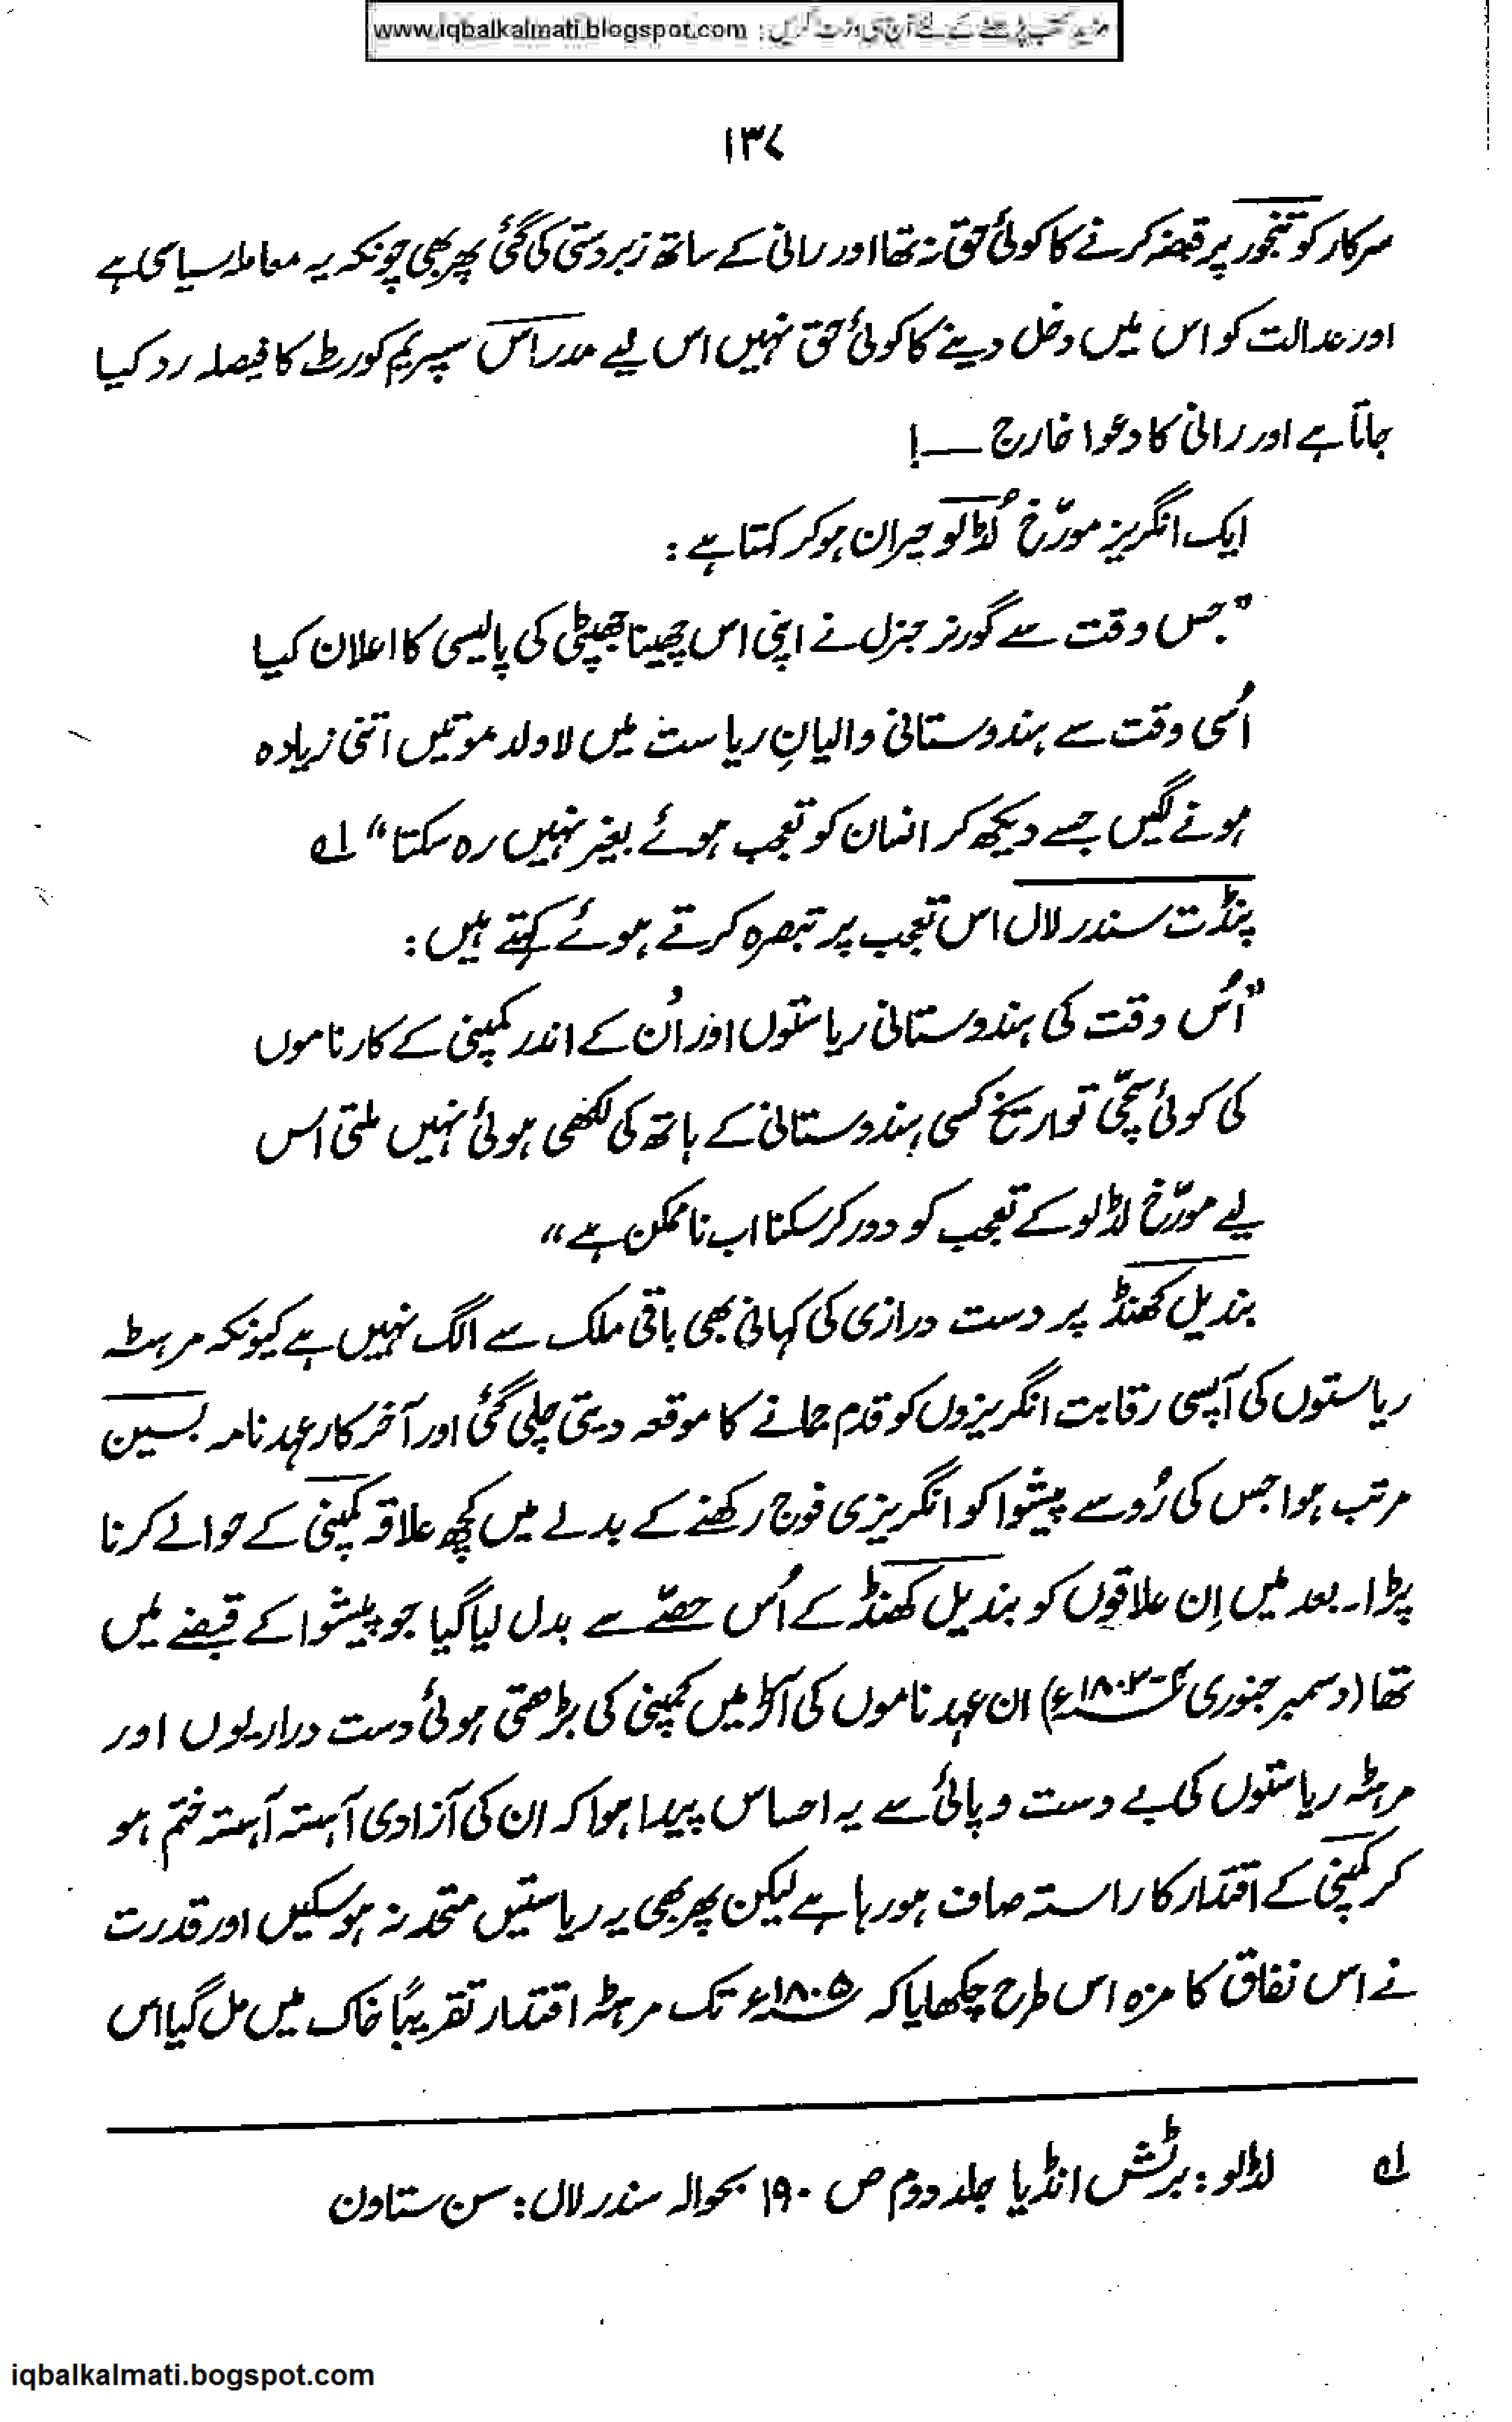 www.iqbalkalmati.blogspot.com : مزید کتب پڑھنے کے لئے آج ہی وزٹ کریں
۱۳۷
سرکار کو تنجور پر قبضہ کرنے کا کوئی حق نہ تھا اور رانی کے ساتھ زبردستی کی گئی پھر بھی چونکہ یہ معاملہ سیاسی ہے
اور عدالت کو اس میں دخل دینے کا کوئی حق نہیں اس لیے مدراس سپریم کورٹ کا فیصلہ رد کیا
جاتا ہے اور رانی کا دعوا خارج ــــ!
ایک انگریز مورّخ لُڈلو حیران ہو کر کہتا ہے :
"جس وقت سے گورنر جنرل نے اپنی اس چھینا جھپٹی کی پالیسی کا اعلان کیا
اُسی وقت سے ہندوستانی والیانِ ریاست میں لاولد موتیں اتنی زیادہ
ہونے لگیں جسے دیکھ کر انسان کو تعجب ہوئے بغیر نہیں رہ سکتا" لہ
پنڈت سندر لال اس تعجب پر تبصرہ کرتے ہوئے کہتے ہیں :
"اُس وقت کی ہندوستانی ریاستوں اور اُن کے اندر کمپنی کے کارناموں
کی کوئی سچّی تواریخ کسی ہندوستانی کے ہاتھ کی لکھی ہوئی نہیں ملتی اس
لیے مورّخ لڈلو کے تعجب کو دور کر سکنا اب ناممکن ہے"
بندیل کھنڈ پر دست درازی کی کہانی بھی باقی ملک سے الگ نہیں ہے کیونکہ مرہٹہ
ریاستوں کی آپسی رقابت انگریزوں کو قدم جمانے کا موقعہ دیتی چلی گئی اور آخر کار عہد نامہ بسین
مرتب ہوا جس کی رُو سے پیشوا کو انگریزی فوج رکھنے کے بدلے میں کچھ علاقہ کمپنی کے حوالے کرنا
پڑا۔ بعد میں اِن علاقوں کو بندیل کھنڈ کے اُس حصّے سے بدل لیا گیا جو پیشوا کے قبضے میں
تھا (دسمبر جنوری ان عہد ناموں کی آڑ میں کمپنی کی بڑھتی ہوئی دست درازیوں اور
مرہٹہ ریاستوں کی بے دست و پائی سے یہ احساس پیدا ہوا کہ ان کی آزادی آہستہ آہستہ ختم ہو
کر کمپنی کے اقتدار کا راستہ صاف ہو رہا ہے لیکن پھر بھی یہ ریاستیں متحد نہ ہو سکیں اور قدرت
نے اس نفاق کا مزہ اس طرح چکھایا کہ ۱۸۰۵ء تک مرہٹہ اقتدار تقریباً خاک میں مل گیا اس
لہ لڈلو : برٹش انڈیا جلد دوم ص ۱۹۰ بحوالہ سندر لال : سن ستاون
iqbalkalmati.bogspot.com